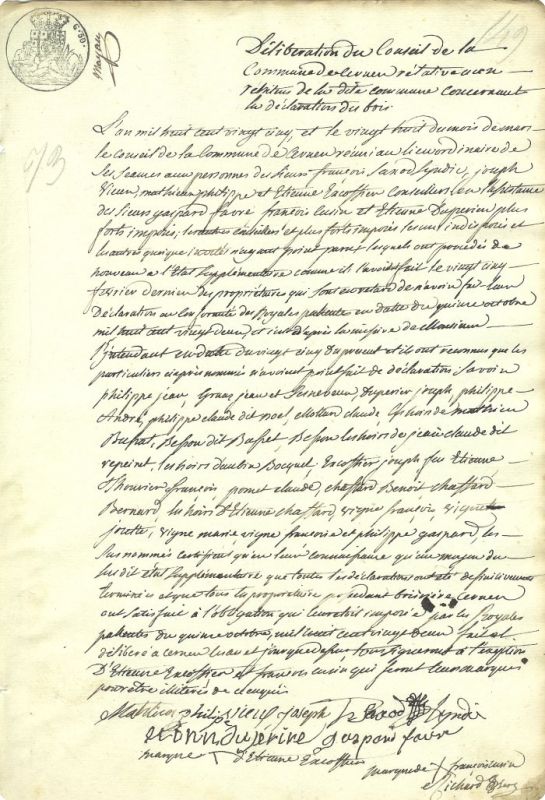 149
Déliberation du Conseil de la
Commune de Cernex rélative aux
de la dite commune concernant
la déclaration des bois
L'an mil huit cent vingt cinq et le vingt huit du mois de mars
le conseil de la Commune de Cernex réuni au lieu ordinaire de
ses séances aux personnes des sieurs françois Savod Syndic, joseph
Vieux, mathieu philippe et Etienne Excoffier Conseillers en l'assistance
des sieurs gaspard favre françois Cusin et Etienne Duperier plus
forts imposés, les autres conseillers et plus forts imposés les uns indisposés et
les autres quoique invités n'ayant point parus lesquels ont procédés de
nouveau à l'Etat Supplémentaire comme ils l'avoit fait le vingt cinq
février dernier des propriétaires qui sont en retard de n'avoir fait leur
Déclaration en Conformité des Royales patentes en datte du quinze octobre
mil huit cent vingt deux, et ce d'après la missive de Monsieur
l'intendant en datte du vingt cinq du present et ils ont reconnus que les
particuliers ci après nommés n'avoient point fait de déclaration Savoir
philippe jean, jean et Duperier joseph, philippe
André, philippe claude dit noel, claude, les hoirs de mathieu
Bussat, Besson dit Bussat, Besson les hoirs de jean claude dit
les hoirs Bocquet Excoffier joseph feu Etienne
Thouvier françois pomet claude, chaffard Benoit chaffard
Bernard, les hoirs d'Etienne chaffard, vigne françois, vigne
josette, vigne marie vigne françoise et philippe gaspard, les
sus nommés certifient qu'à leur connaissance qu'au moyen du
susdit état Supplémentaire que toutes les déclarations ont été définitivement
terminées et que tous les propriétaires possédant bois rière Cernex
ont satisfait à l'obligation qui leur etoit imposée par les Royales
patentes du quinze octobre mil huit cent vingt deux fait et
délibéré à Cernex l'an et jour que dessus tous signeront à l'exception
D'Etienne Excoffier et françois Cusin qui feront leur marques
pour être illiterés de ce enquis
Mathieu philippe Vieux joseph Savod Syndic
Etienne duperier gaspard favre
marque d'Etienne Excoffier
marque de françois Cusin
Richard